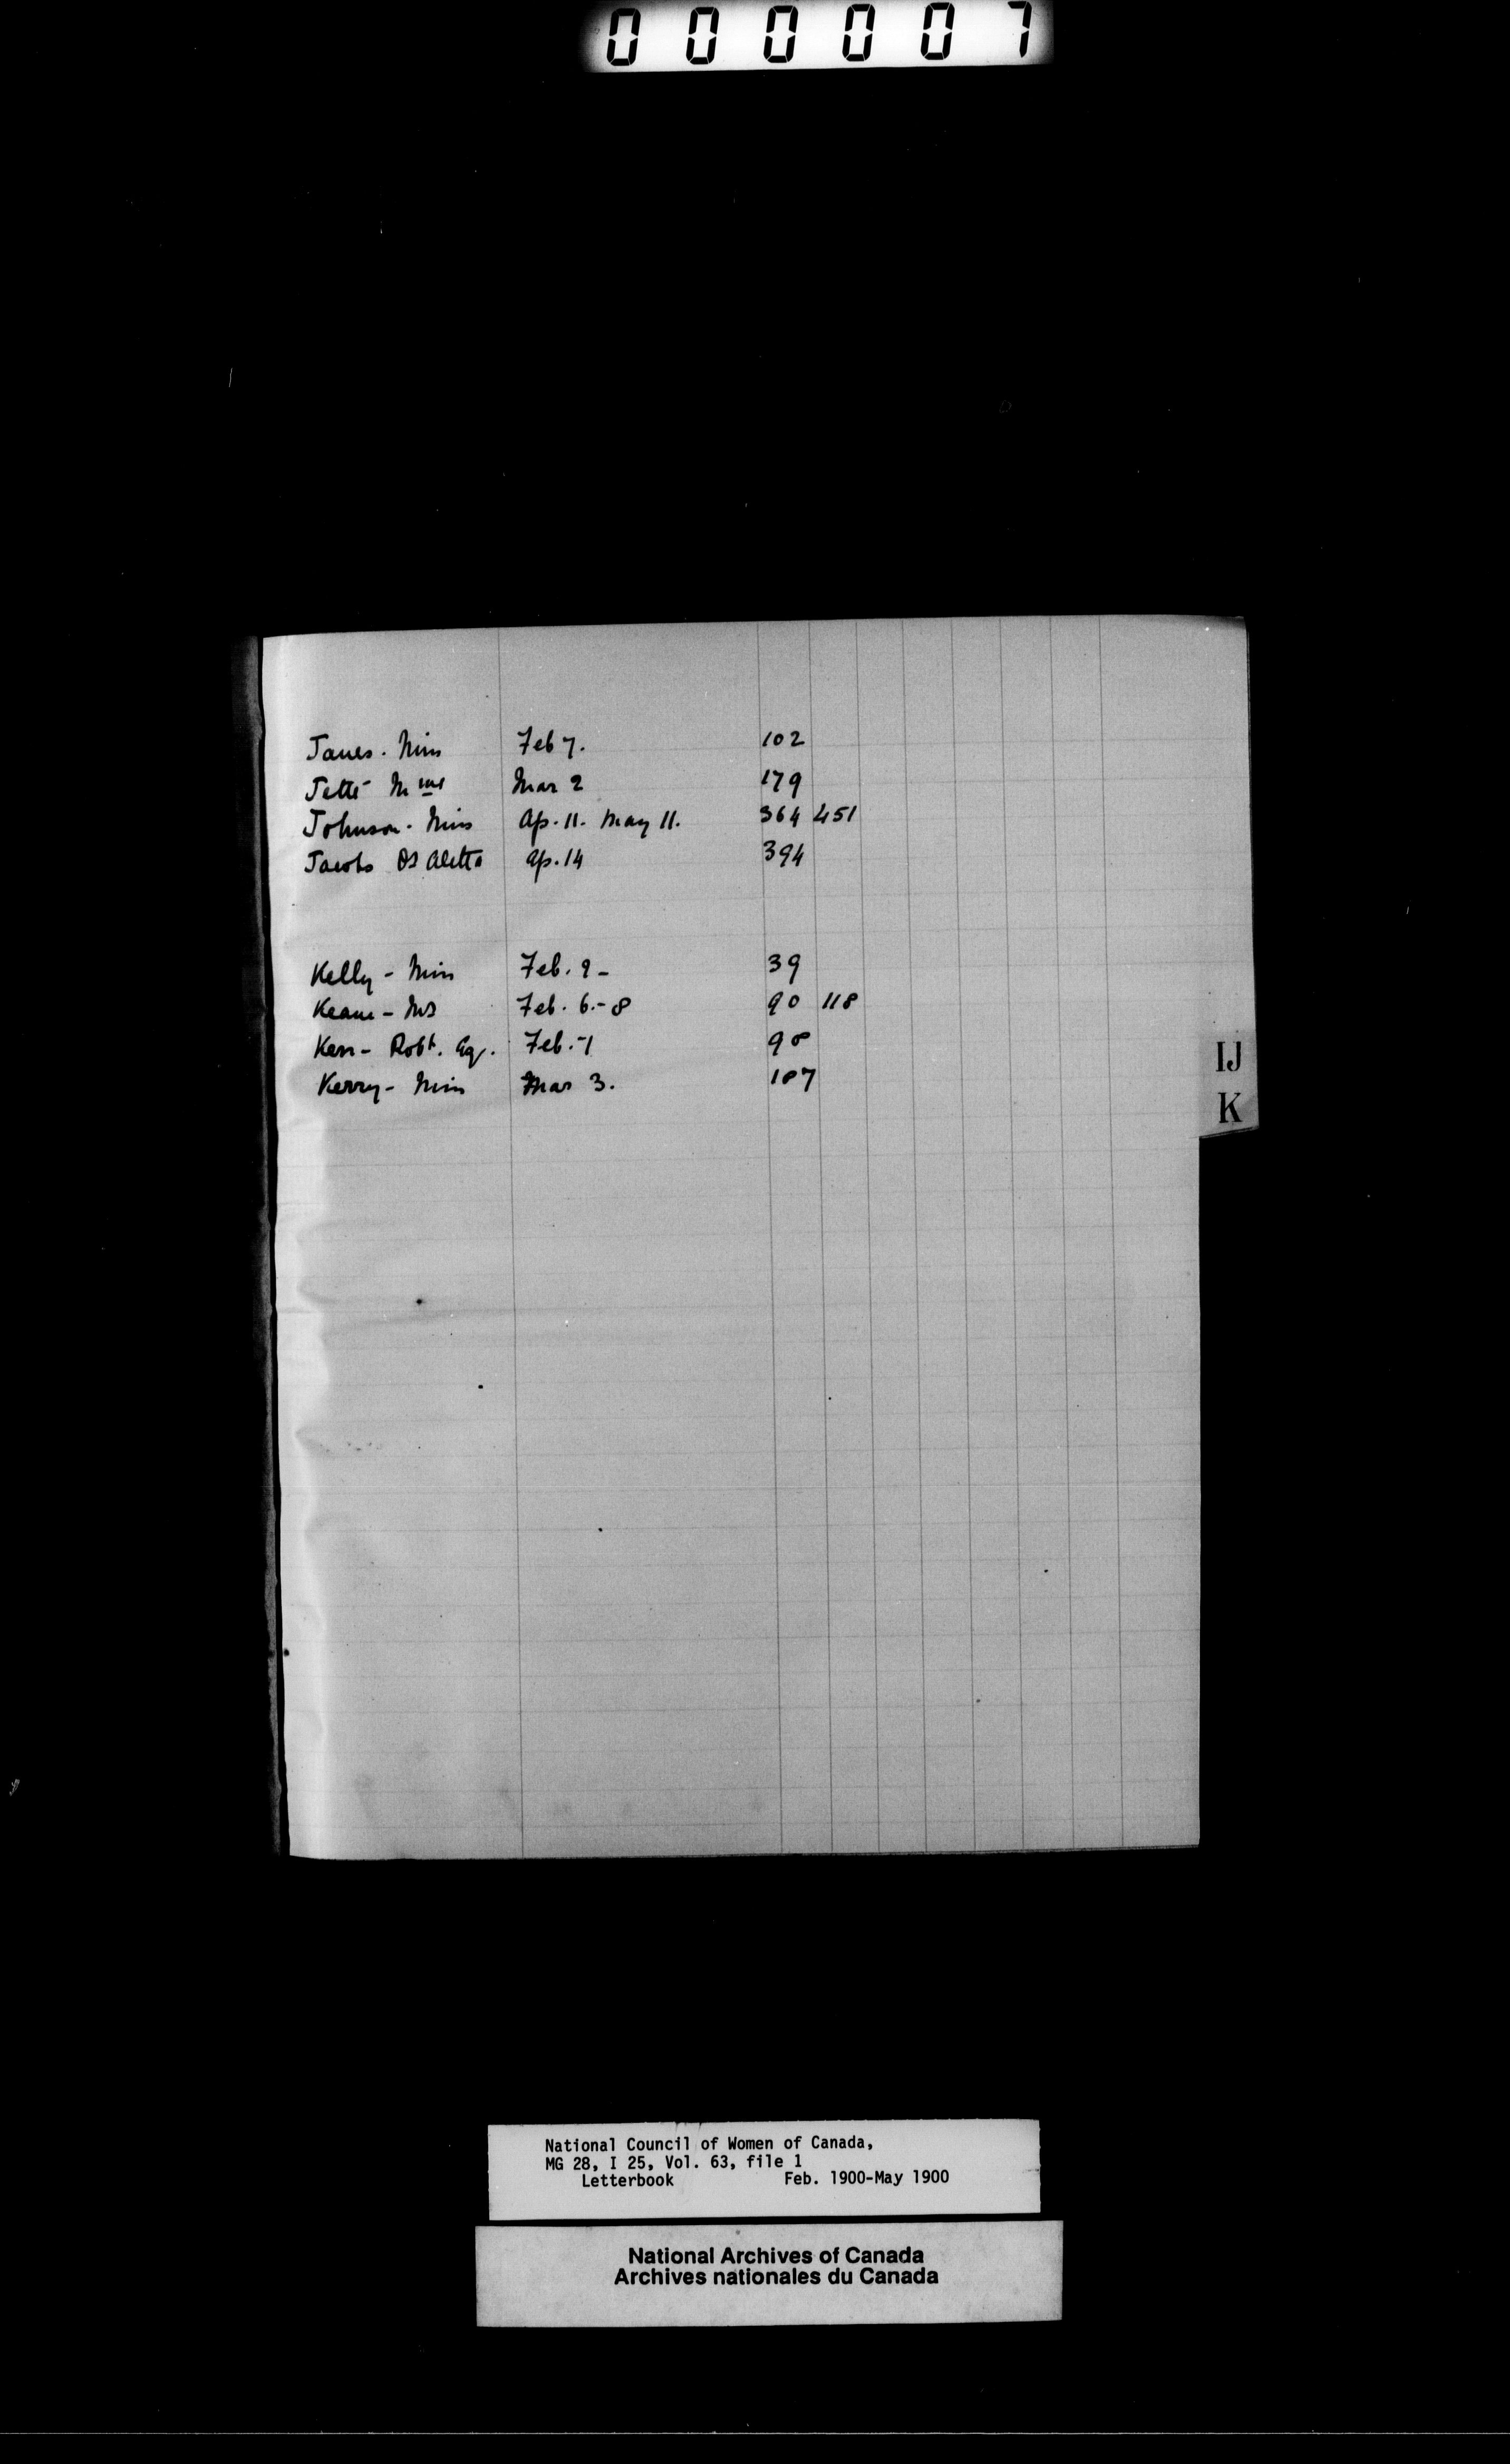 000007
Janes. Miss Feb 7. 102
Jetté Mme Mar 2 179
Johnson. Miss Ap. 11. May 11. 364 451
Jacobs Dr Aletta Ap. 14 394
Kelly - Miss Feb. 2 - 39
Keane - Mrs Feb. 6. - 8 90 118
Kerr - Robt. Esq. Feb. 7 98
Kerry - Miss Mar 3. 187
IJ
K
National Council of Women of Canada,
MG 28, I 25, Vol. 63, file 1
Letterbook Feb. 1900-May 1900
National Archives of Canada
Archives nationales du Canada